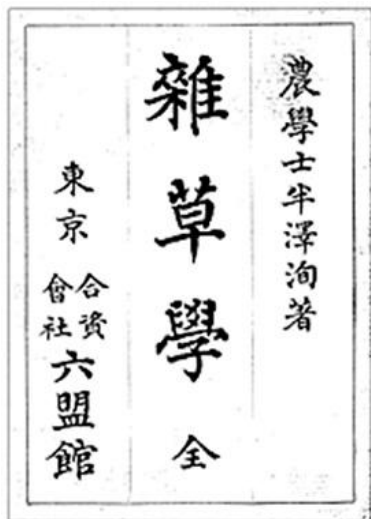 農學士半澤洵著
雜草學 全
東京 合資會社 六盟館